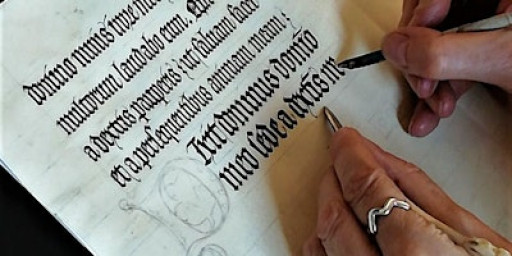 domino nimis in ore
multorum laudabo eum.
a dextris pauperis ut saluam face
ret a persequentibus animam meam:
Dixit dominus domino
meo sede a dextris m